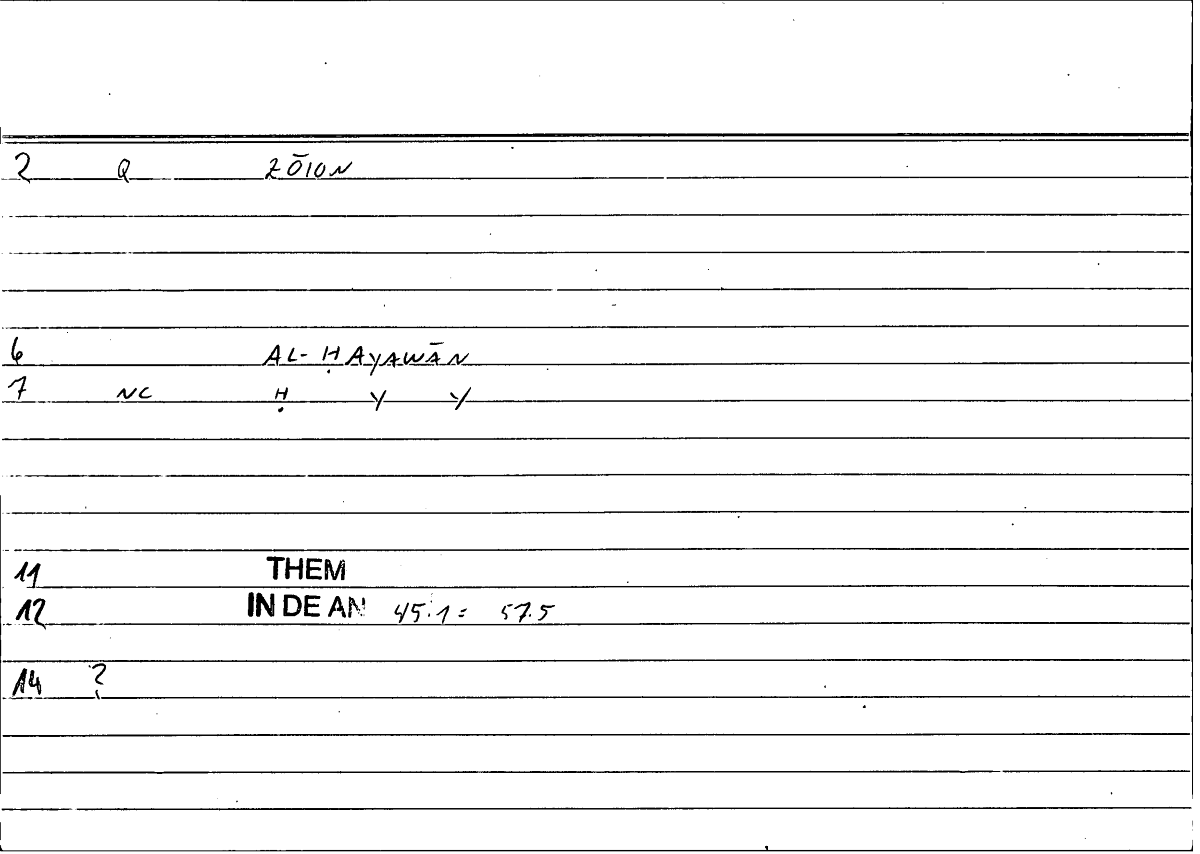 2 Q ZŌION
6 AL-ḤAYAWĀN
7 NC Ḥ Y Y
11 THEM
12 IN DE AN 45.1 = 57.5
14 ?